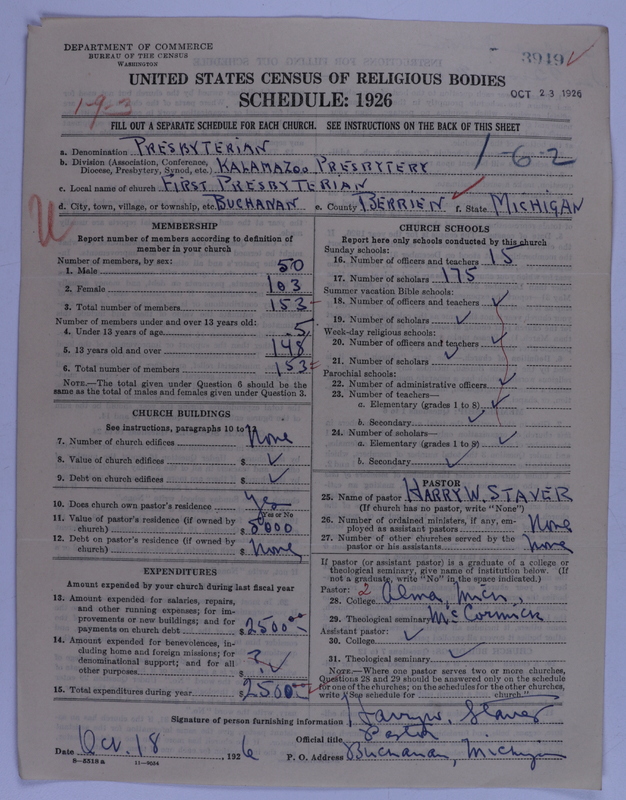 DEPARTMENT OF COMMERCE
BUREAU OF THE CENSUS
WASHINGTON
3949
UNITED STATES CENSUS OF RELIGIOUS BODIES
SCHEDULE: 1926
OCT 23 1926
1-9-3
FILL OUT A SEPARATE SCHEDULE FOR EACH CHURCH. SEE INSTRUCTIONS ON THE BACK OF THIS SHEET
a. Denomination PRESBYTERIAN
b. Division (Association, Conference, Diocese, Presbytery, Synod, etc.) KALAMAZOO PRESBYTERY
1-6-2
c. Local name of church FIRST PRESBYTERIAN
d. City, town, village, or township, etc. BUCHANAN e. County BERRIEN f. State MICHIGAN
MEMBERSHIP
Report number of members according to definition of
member in your church
Number of members, by sex:
1. Male 50
2. Female 103
3. Total number of members 153
Number of members under and over 13 years old:
4. Under 13 years of age 5
5. 13 years old and over 148
6. Total number of members 153
NOTE.—The total given under Question 6 should be
same as the total of males and females given under Question 3.
CHURCH BUILDINGS
See instructions, paragraphs 10 to
7. Number of church edifices None
8. Value of church edifices $ ✓
9. Debt on church edifices $ ✓
10. Does church own pastor's residence Yes
Yes or No
11. Value of pastor's residence (if owned by
church) $ 5000
12. Debt on pastor's residence (if owned by
church) $ None
EXPENDITURES
Amount expended by your church during last fiscal year
13. Amount expended for salaries, repairs,
and other running expenses; for im-
provements or new buildings; and for
payments on church debt $ 2500.00
14. Amount expended for benevolences, in-
cluding home and foreign missions; for
denominational support; and for all
other purposes $ ? ✓
15. Total expenditures during year $ 2500
CHURCH SCHOOLS
Report here only schools conducted by this church
Sunday schools:
16. Number of officers and teachers 15
17. Number of scholars 175
Summer vacation Bible schools:
18. Number of officers and teachers ✓
19. Number of scholars ✓
Week-day religious schools:
20. Number of officers and teachers ✓
21. Number of scholars ✓
Parochial schools:
22. Number of administrative officers ✓
23. Number of teachers—
a. Elementary (grades 1 to 8) ✓
b. Secondary ✓
24. Number of scholars—
a. Elementary (grades 1 to 8) ✓
b. Secondary ✓
PASTOR
25. Name of pastor HARRY W. STAVER
(If church has no pastor, write "None")
26. Number of ordained ministers, if any, em-
ployed as assistant pastors None
27. Number of other churches served by the
pastor or his assistants None
If pastor (or assistant pastor) is a graduate of a college or
theological seminary, give name of institution below. (If
not a graduate, write "No" in the space indicated.)
Pastor: 2
28. College Alma, Mich.,
29. Theological seminary McCormick
Assistant pastor:
30. College ✓
31. Theological seminary ✓
NOTE.—Where one pastor serves two or more churches,
Questions 28 and 29 should be answered only on the schedule
for one of the churches; on the schedules for the other churches,
write "See schedule for church."
Signature of person furnishing information Harry W. Staver
Official title Pastor
Date Oct. 18 1926 P. O. Address Buchanan, Michigan
8-5518 a 11-9034